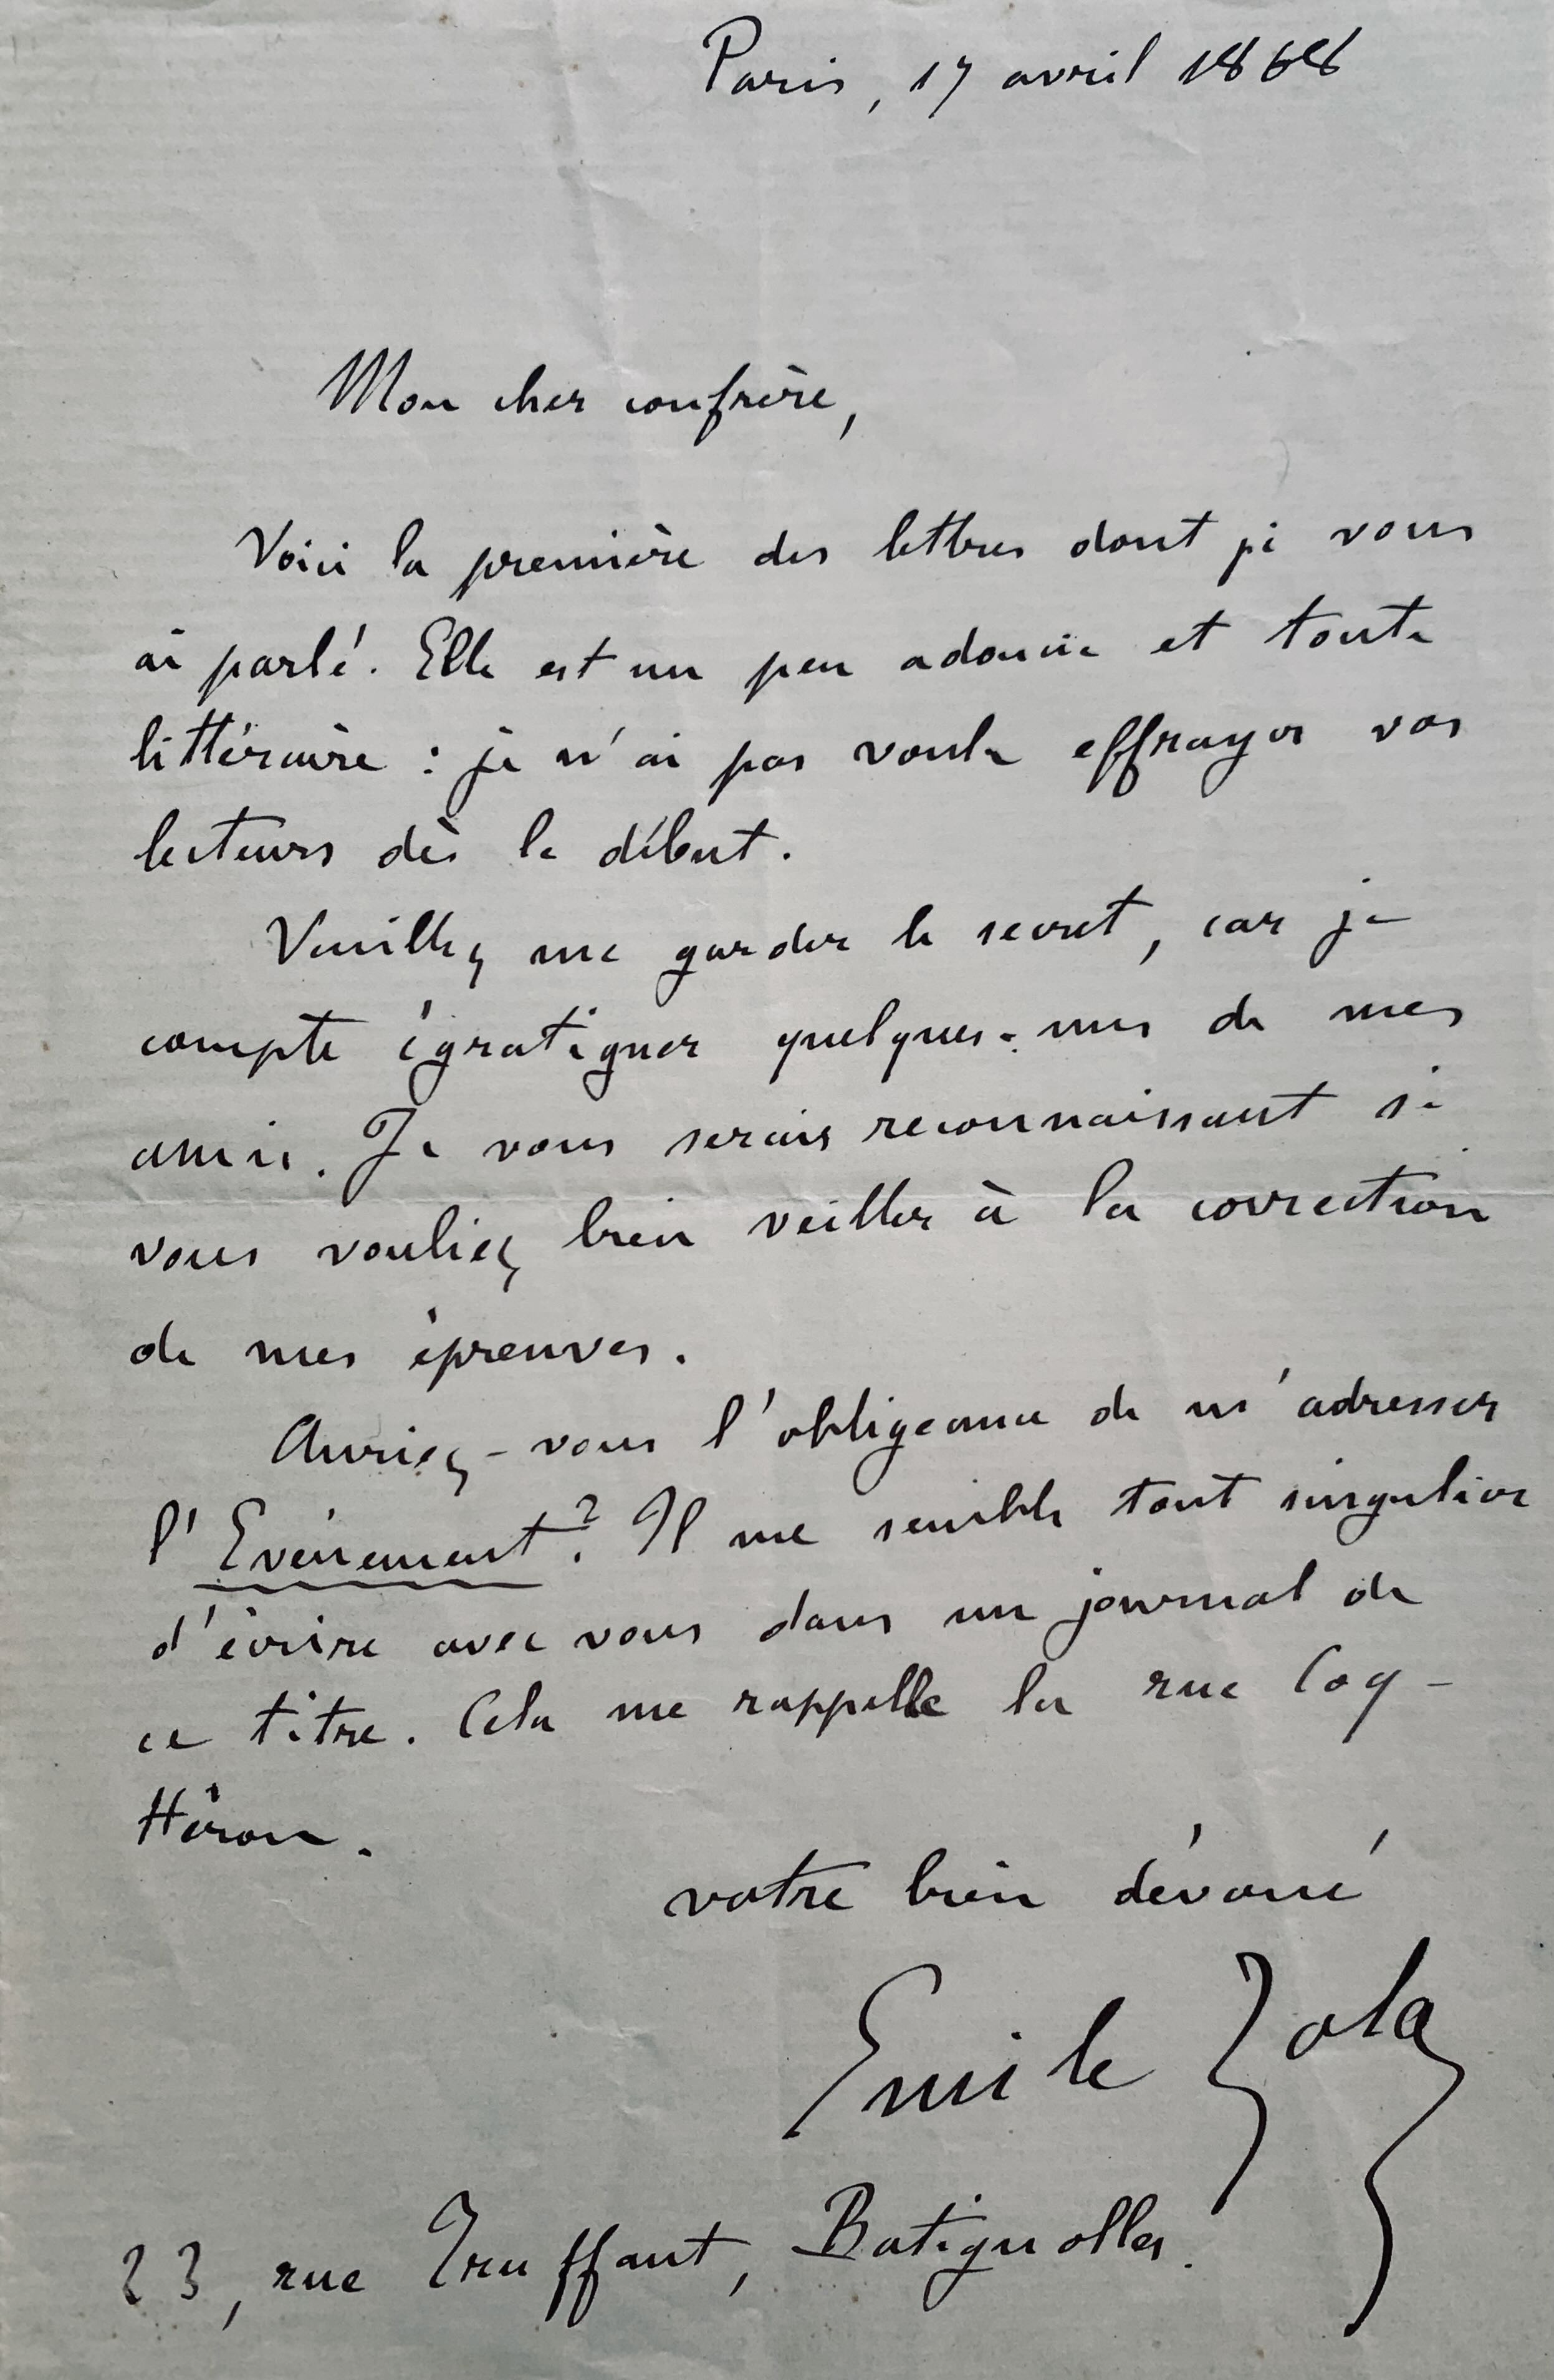 Paris, 17 avril 1868
Mon cher confrère,
Voici la première des lettres dont je vous
ai parlé. Elle est un peu adoucie et toute
littéraire : je n'ai pas voulu effrayer vos
lecteurs dès le début.
Veuillez me garder le secret, car je
compte égratigner quelques-uns de mes
amis. Je vous serais reconnaissant si
vous vouliez bien veiller à la correction
de mes épreuves.
Auriez-vous l'obligeance de m'adresser
l'Evénement ? Il me semble tout singulier
d'écrire avec vous dans un journal de
ce titre. Cela me rappelle la rue Coq-
Héron.
votre bien dévoué
Emile Zola
23, rue Truffaut, Batignolles.